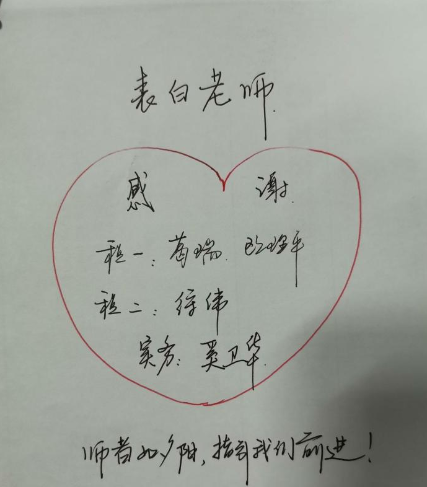 表白老师
感 谢
税一：葛瑞
税二：徐伟
实务：吴卫华
师者如夕阳，指引我们前进！